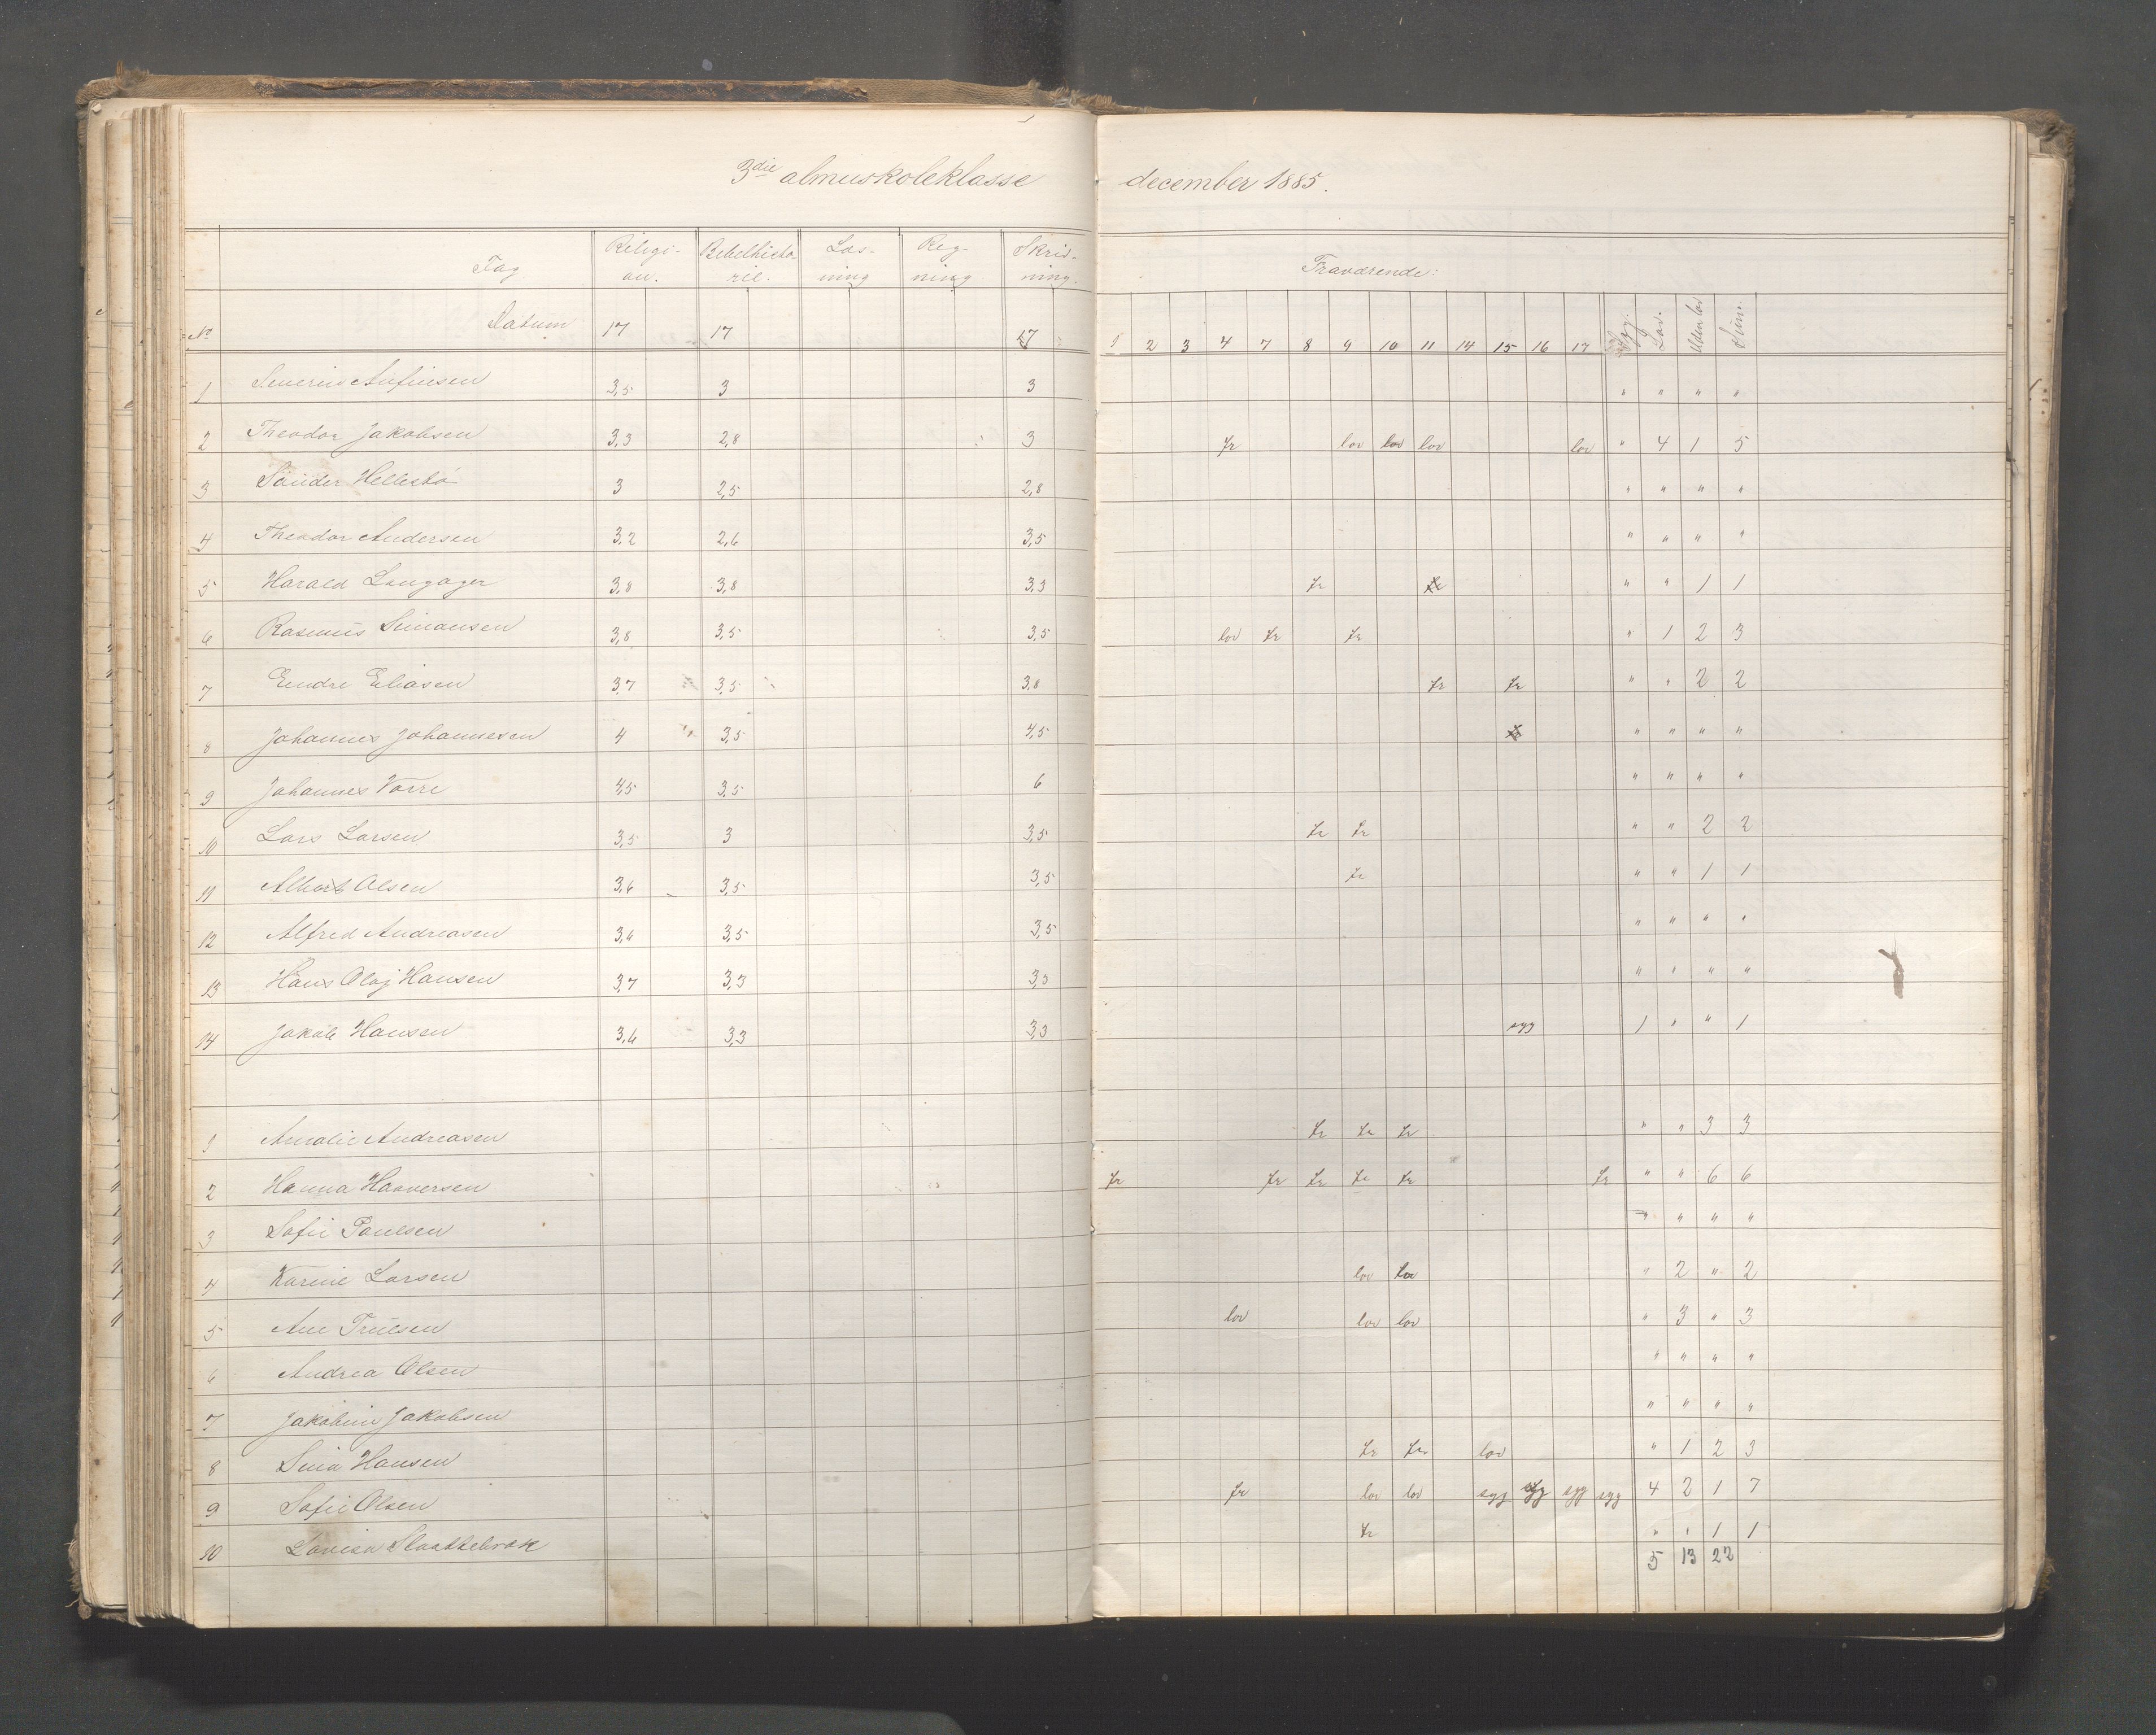 3die almueskoleklasse december 1885.
Fag Religi- on. Bibelhisto rie. Læs- ning Reg- ning Skriv- ning. Fraværende:
No Datum 17 17 17 1 2 3 4 7 8 9 10 11 14 15 16 17 Syg. Lov. Uden lov Sum.
1 Severin Anfinsen 3,5 3 3 " " " "
2 Theodor Jakobsen 3,3 2,8 3 fr lov lov lov lov " 4 1 5
3 Sander Hellestø 3 2,5 2,8 " " " "
4 Theodor Andersen 3,2 2,6 3,5 " " " "
5 Harald Langager 3,8 3,8 3,3 fr fr " " 1 1
6 Rasmus Simonsen 3,8 3,5 3,5 lov fr fr " 1 2 3
7 Endre Eliasen 3,7 3,5 3,8 fr fr " " 2 2
8 Johannes Johannesen 4 3,5 4,5 " " " "
9 Johannes Vorre 4,5 3,5 6 " " " "
10 Lars Larsen 3,5 3 3,5 fr fr " " 2 2
11 Albert Olsen 3,6 3,5 3,5 fr " " 1 1
12 Alfred Andreasen 3,6 3,5 3,5 " " " "
13 Hans Olaj Hansen 3,7 3,3 3,3 " " " "
14 Jakob Hansen 3,6 3,3 3,3 syg 1 " " 1
1 Amalie Andreasen fr fr fr " " 3 3
2 Hanna Haaversen fr fr fr fr fr fr " " 6 6
3 Sofie Poulsen " " " "
4 Karine Larsen lov lov " 2 " 2
5 Ane Trulsen lov lov lov " 3 " 3
6 Andrea Olsen " " " "
7 Jakobine Jakobsen " " " "
8 Sina Hansen fr fr lov " 1 2 3
9 Sofie Olsen fr lov lov syg syg syg syg 4 2 1 7
10 Lovisa Slaattebrok fr " " 1 1
5 13 22